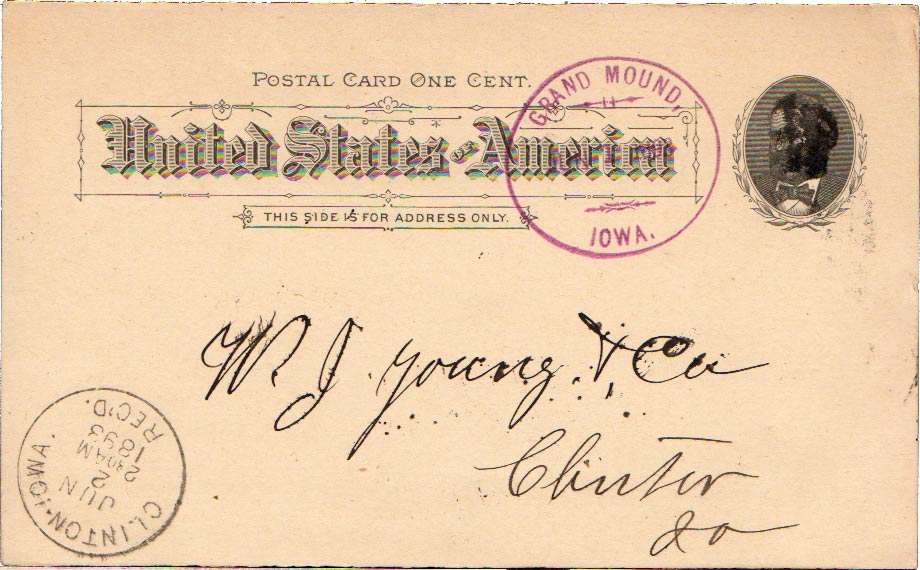 POSTAL CARD ONE CENT.
United States of America
THIS SIDE IS FOR ADDRESS ONLY.
GRAND MOUND,
IOWA.
W J Young & Co
Clinton
Io
CLINTON, IOWA.
JUN
2
230AM
1893
REC'D.